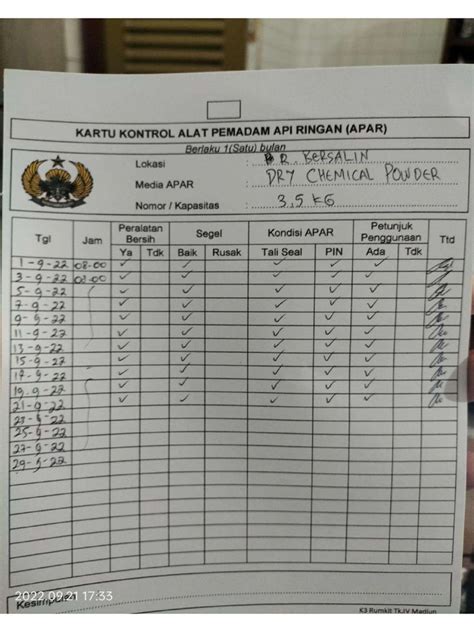 KARTU KONTROL ALAT PEMADAM API RINGAN (APAR)
Berlaku 1(Satu) bulan
Lokasi R. BERSALIN
Media APAR DRY CHEMICAL POWDER
Nomor / Kapasitas 3,5 KG
Tgl Jam Peralatan Bersih Segel Kondisi APAR Petunjuk Penggunaan Ttd
Ya Tdk Baik Rusak Tali Seal PIN Ada Tdk
1-9-22 08.00 ✓ ✓ ✓ ✓ ✓
3-9-22 08.00 ✓ ✓ ✓ ✓ ✓
5-9-22 ✓ ✓ ✓ ✓ ✓
7-9-22 ✓ ✓ ✓ ✓ ✓
9-9-22 ✓ ✓ ✓ ✓ ✓
11-9-22 ✓ ✓ ✓ ✓ ✓
13-9-22 ✓ ✓ ✓ ✓ ✓
15-9-22 ✓ ✓ ✓ ✓ ✓
17-9-22 ✓ ✓ ✓ ✓ ✓
19-9-22 ✓ ✓ ✓ ✓ ✓
21-9-22 ✓ ✓ ✓ ✓ ✓
23-9-22
25-9-22
27-9-22
29-9-22
2022.09.21 17:33
K3 Rumkit Tk.IV Madiun